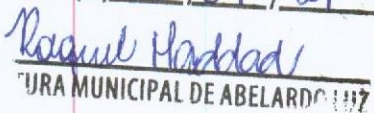 Raquel Haddad
URA MUNICIPAL DE ABELARDO LUZ